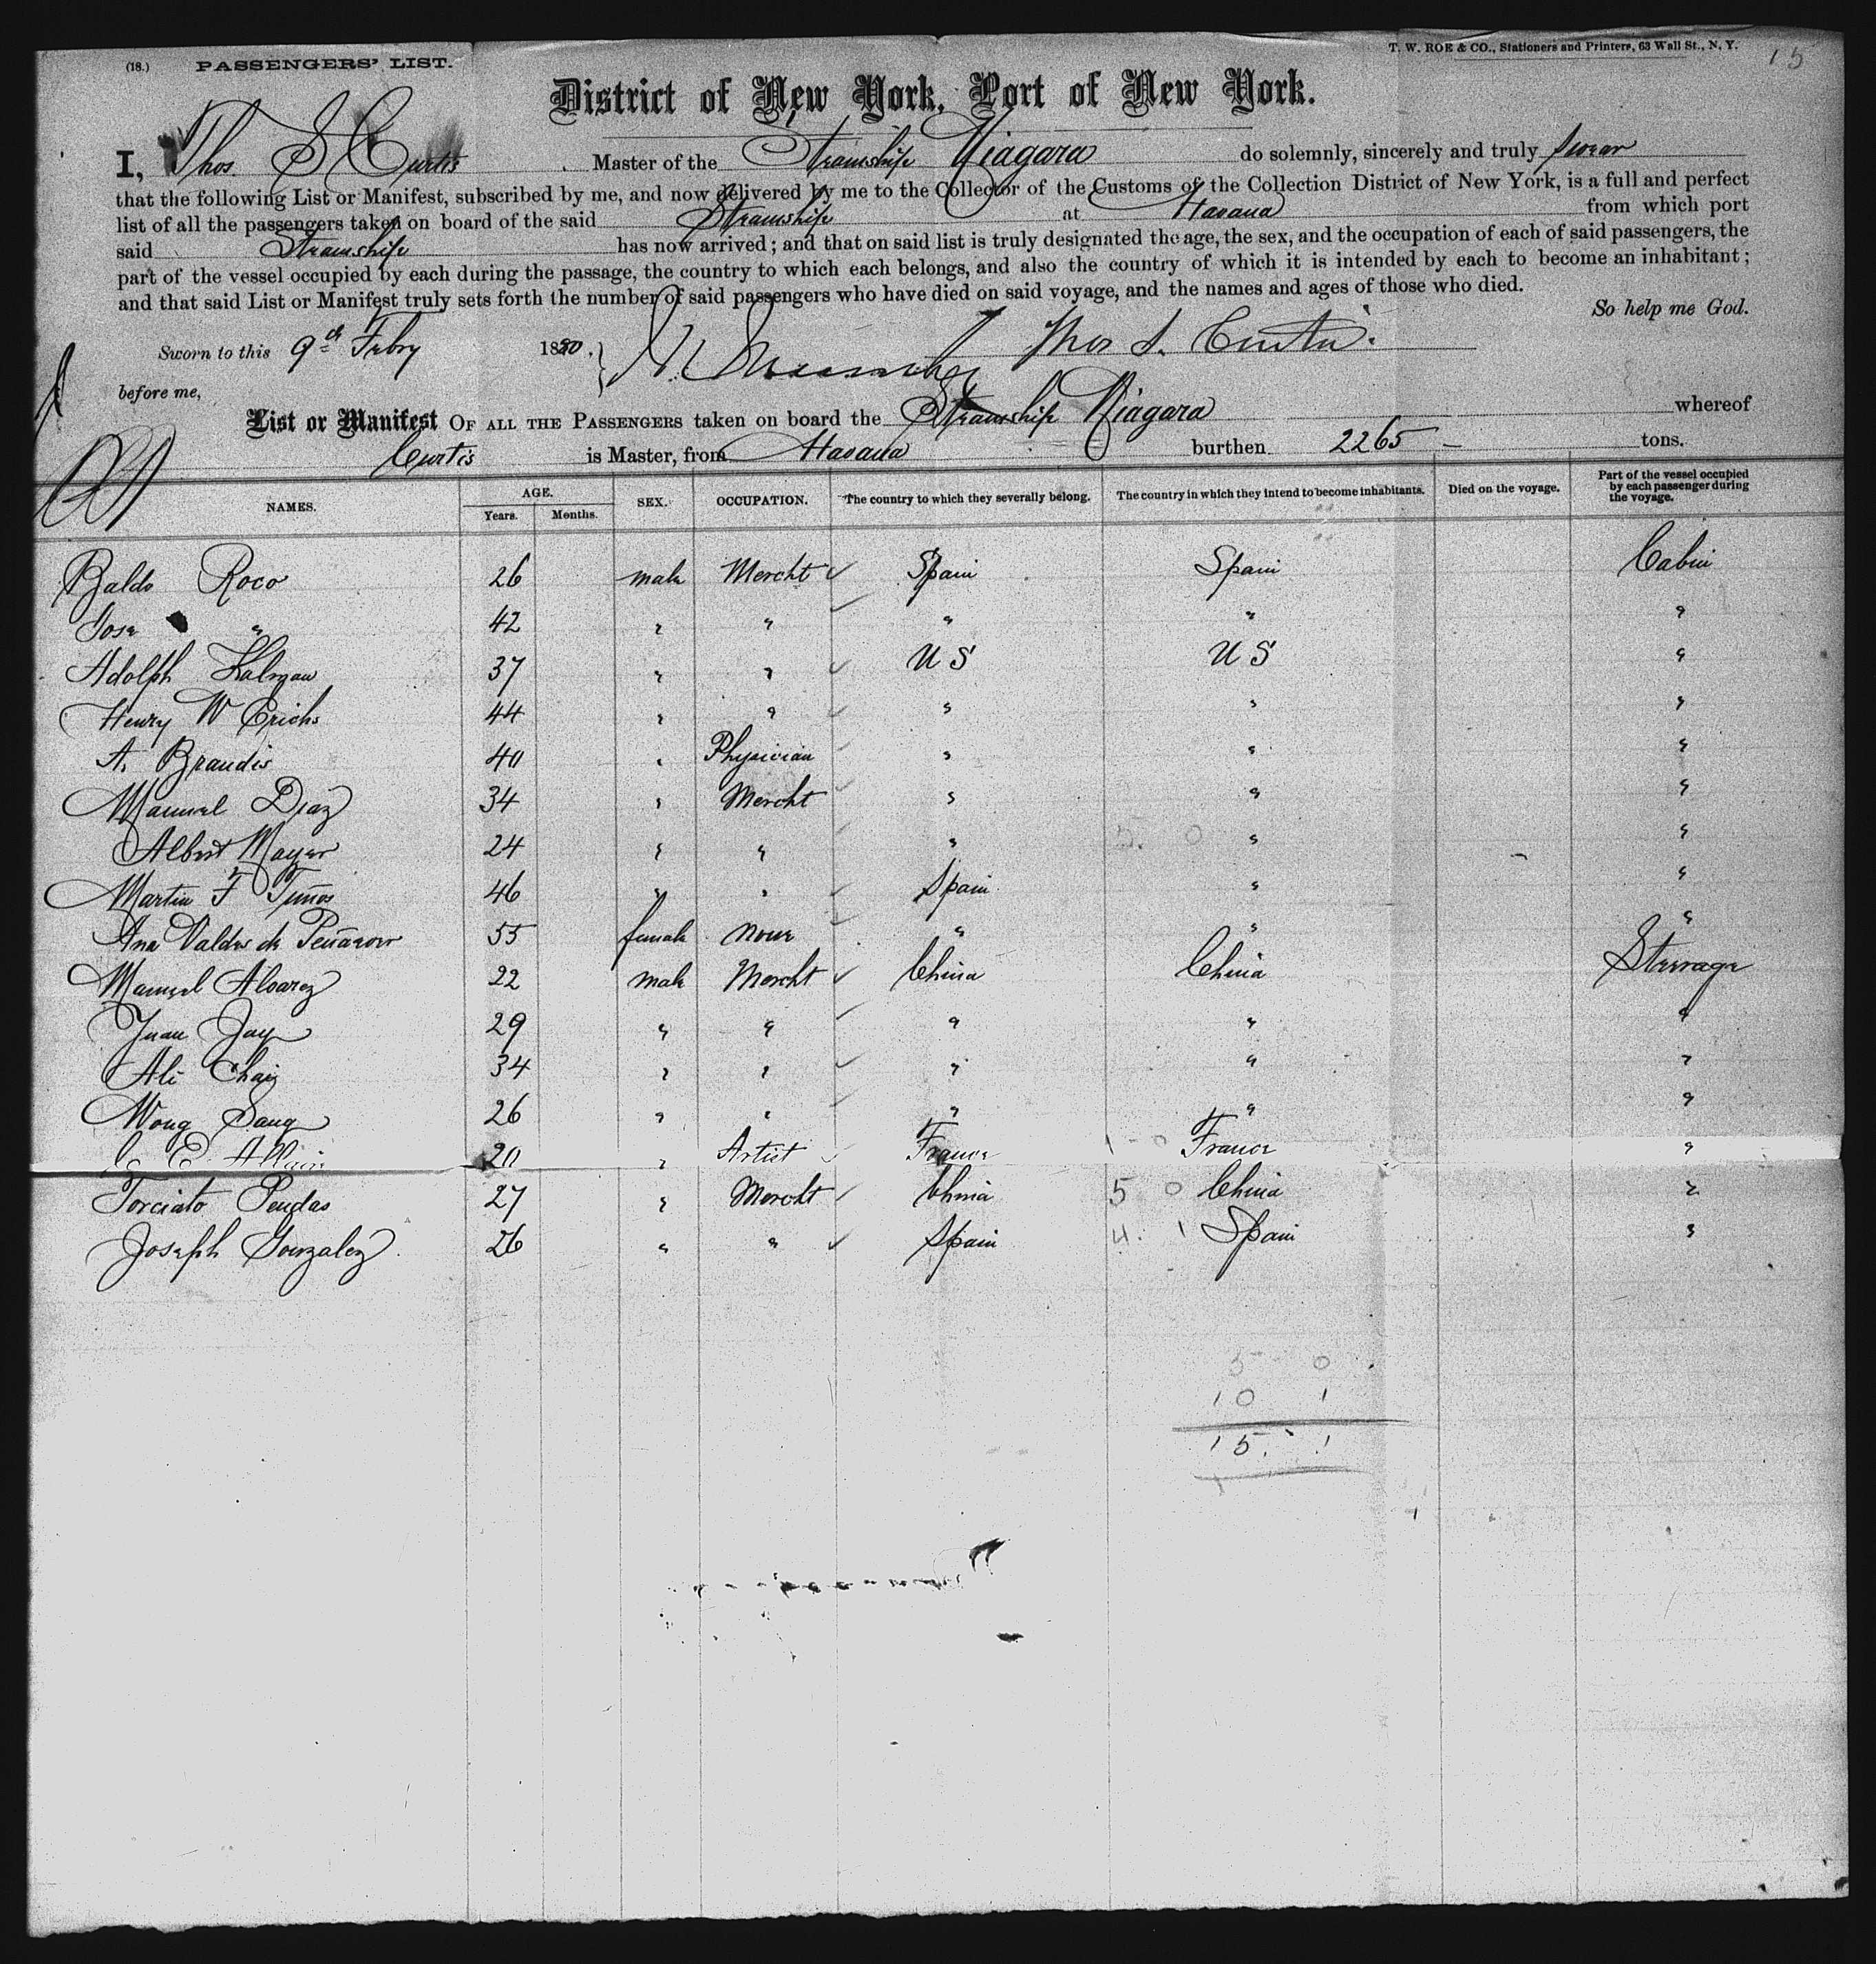 (18.) PASSENGERS' LIST.
T. W. ROE & CO., Stationers and Printers, 63 Wall St., N. Y.
15
District of New York, Port of New York.
I, Thos. S Curtis Master of the Steamship Niagara do solemnly, sincerely and truly swear
that the following List or Manifest, subscribed by me, and now delivered by me to the Collector of the Customs of the Collection District of New York, is a full and perfect
list of all the passengers taken on board of the said Steamship at Havana from which port
said Steamship has now arrived; and that on said list is truly designated the age, the sex, and the occupation of each of said passengers, the
part of the vessel occupied by each during the passage, the country to which each belongs, and also the country of which it is intended by each to become an inhabitant;
and that said List or Manifest truly sets forth the number of said passengers who have died on said voyage, and the names and ages of those who died.
So help me God.
Sworn to this 9th Febry 1880, Thos S. Curtis.
before me,
List or Manifest OF ALL THE PASSENGERS taken on board the Steamship Niagara whereof
Curtis is Master, from Havana burthen 2265 — tons.
NAMES. AGE. Years. Months. SEX. OCCUPATION. The country to which they severally belong. The country in which they intend to become inhabitants. Died on the voyage. Part of the vessel occupied by each passenger during the voyage.
Baldo Roco 26 male Mercht Spain Spain Cabin
Jose " 42 " " " " "
Adolph Kalman 37 " " U S U S "
Henry W Erichs 44 " " " " "
A. Brandis 40 " Physician " " "
Manuel Diaz 34 " Mercht " " "
Albert Mayer 24 " " " 5. 0 " "
Martin F Tuños 46 " " Spain " "
Ana Valdes de 55 female None " " "
Manuel Alvarez 22 male Mercht China China Steerage
Juan Jay 29 " " " " "
Ali Chaiz 34 " " " " "
Wong Sang 26 " " " " "
E Allain 20 " Artist France 1 - 0 France "
Torciato Pendas 27 " Mercht China 5 0 China "
Joseph Gonzalez 26 " " Spain 4. 1 Spain "
5 0
10 1
15. 1